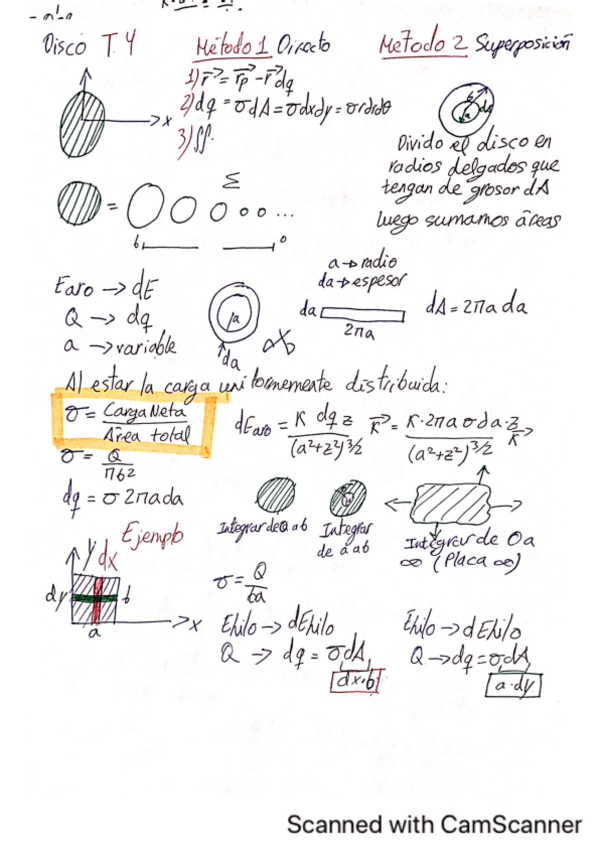 Disco T.4
Método 1 Directo
1) r⃗ = r⃗p - r⃗dq
2) dq = σdA = σdxdy = σrdrdθ
3) ∫∫.
Metodo 2 Superposición
b a da
Divido el disco en
radios delgados que
tengan de grosor dA
luego sumamos áreas
x
= Σ ...
b 0
Earo → dE
Q → dq
a → variable
a
da
a → radio
da → espesor
da
2πa
dA = 2πa da
Al estar la carga uniformemente distribuida:
σ = Carga Neta / Área total
σ = Q / πb²
dq = σ2πada
dEaro = K dq z / (a²+z²)^3/2 K⃗ = K·2πaσda·z / (a²+z²)^3/2 K⃗
Integrar de 0 a b
Integrar
de a a b
Integrar de 0 a
∞ (Placa ∞)
Ejemplo
y dx
dy b
a
x
σ = Q / ba
Ehilo → dEhilo
Q → dq = σdA
dx·b
Ehilo → dEhilo
Q → dq = σdA
a·dy
Scanned with CamScanner